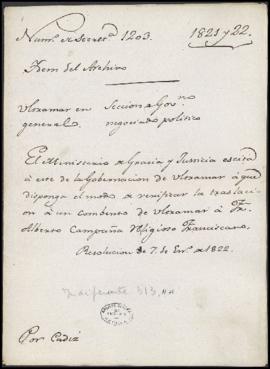 Num.º de Secret.ª 1203.
1821 y 22.
Idem del Archivo
Ultramar en general.
Seccion de Gov.no
negociado político
El Ministerio de Gracia y Justicia escita
á este de la Gobernacion de Ultramar á que
disponga el modo de verificar la traslac-
ion á un combento de Ultramar á Fr.
Alberto Campaña Religioso Franciscano.
Resolucion de 7. de En.º de 1822.
Indiferente 313,
Por Cadiz